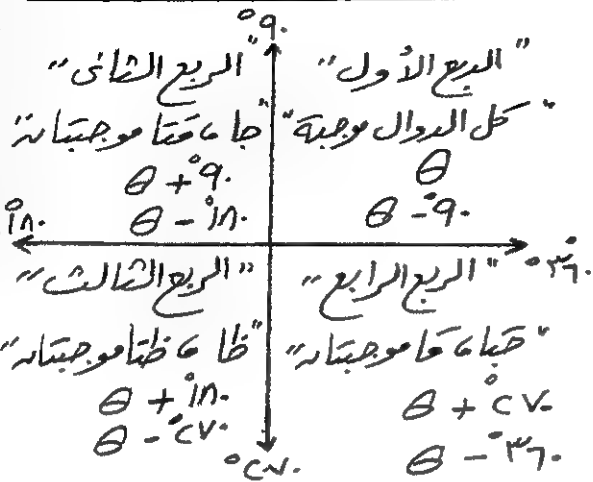 ٩٠°
"الربع الأول"
"كل الدوال موجبة"
θ
٩٠° - θ
"الربع الثانى"
"جا ، قتا موجبتان"
٩٠° + θ
١٨٠° - θ
١٨٠°
٣٦٠°
"الربع الثالث"
"ظا ، ظتا موجبتان"
١٨٠° + θ
٢٧٠° - θ
"الربع الرابع"
"جتا ، قا موجبتان"
٢٧٠° + θ
٣٦٠° - θ
٢٧٠°